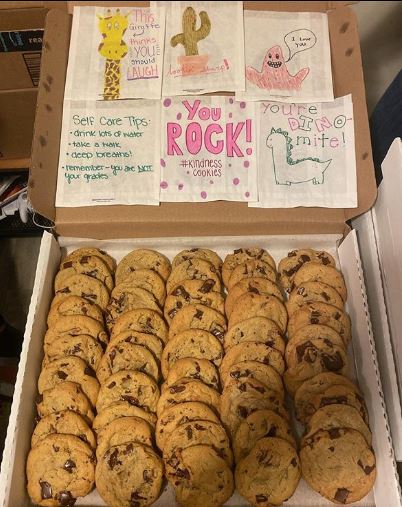 rea
This
Giraffe
thinks
YOU
should
LAUGH
I love
YOU
Self Care Tips:
• drink lots of water
• take a walk
• deep breaths!
• remember - you are NOT
your grades
You
ROCK!
#kindness
cookies
you're
DINO-
mite!